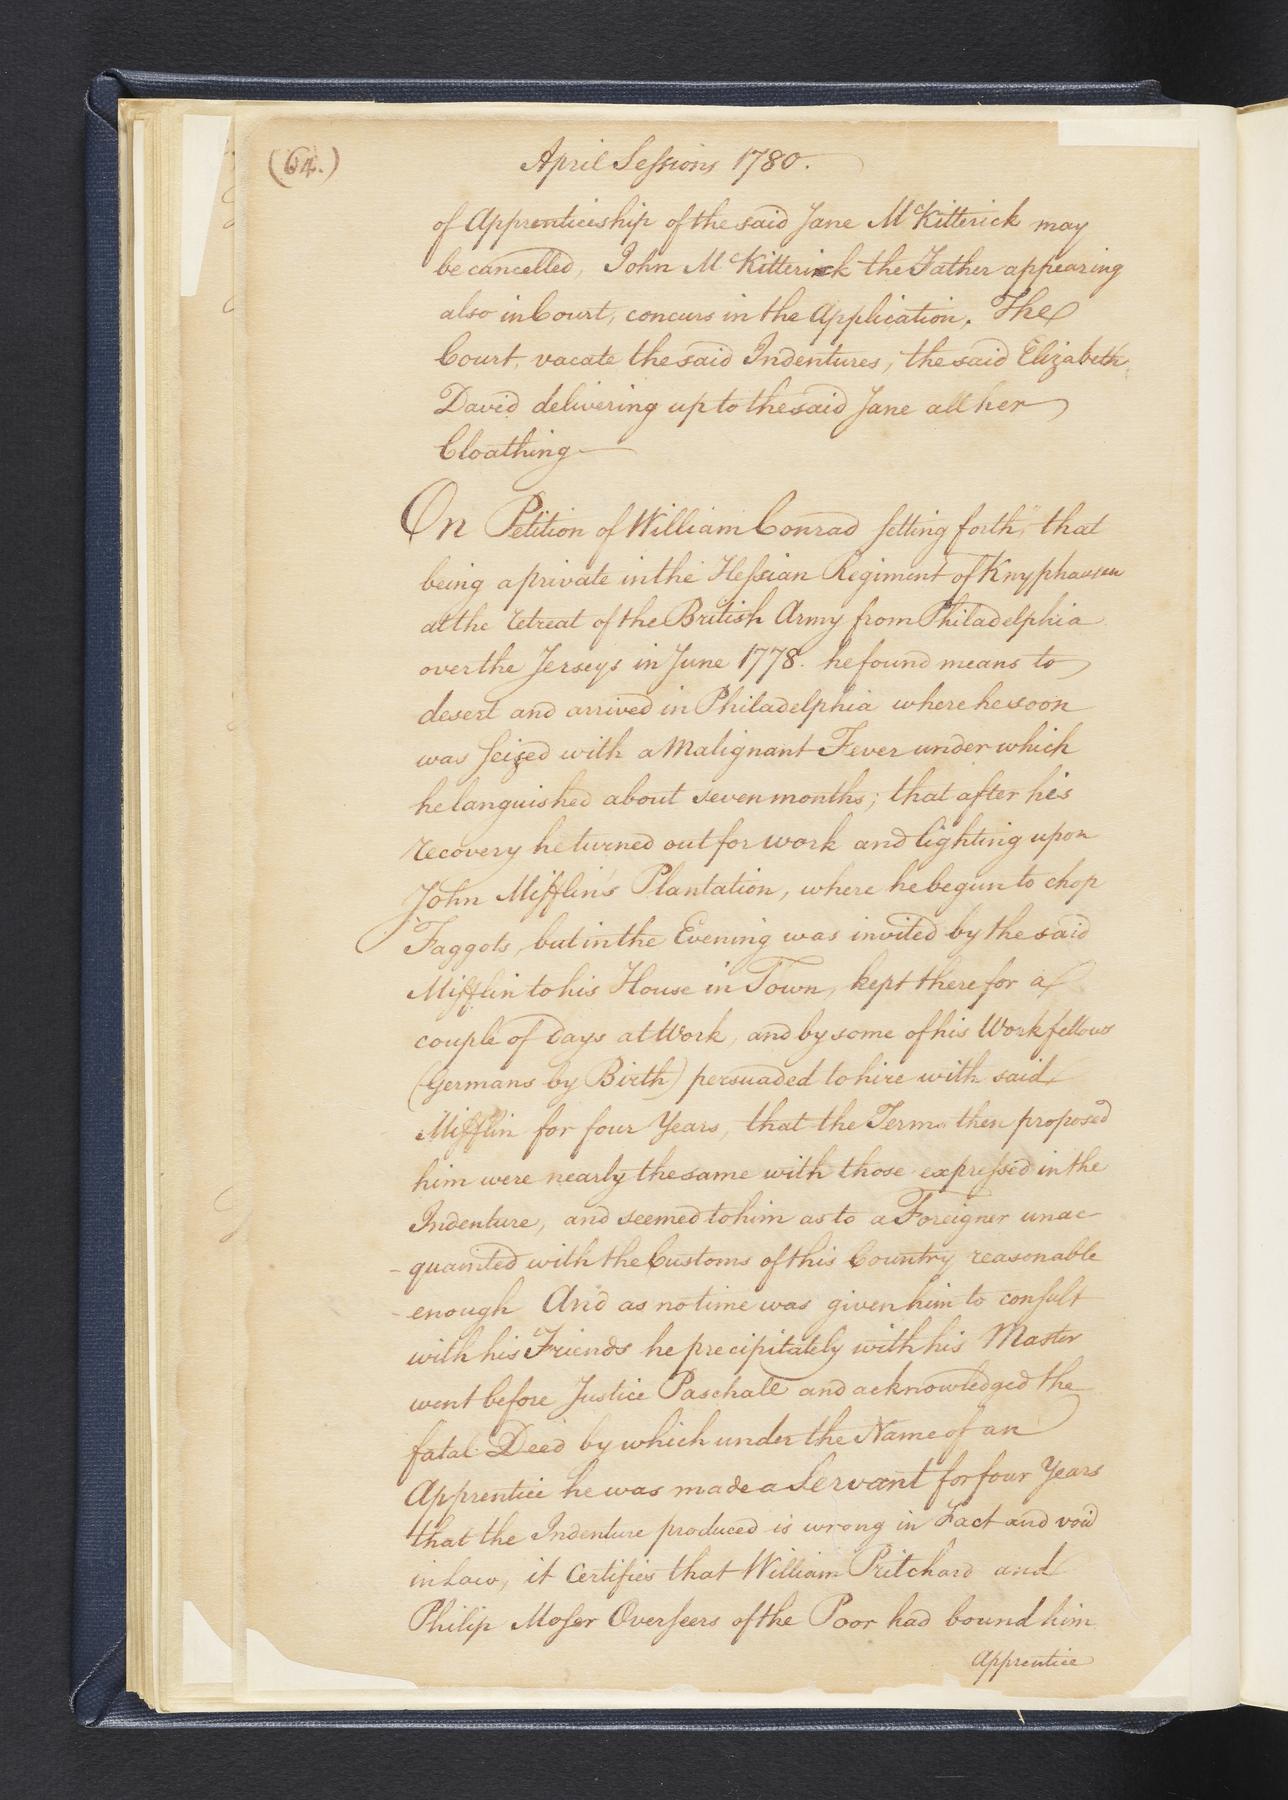 (64.)
April Sessions 1780.
of Apprenticeship of the said Jane McKitterick may
be cancelled, John McKitterick the Father appearing
also in Court, concurs in the Application. The
Court vacate the said Indentures, the said Elizabeth
David delivering up to the said Jane all her
Cloathing
On Petition of William Conrad setting forth, that
being a private in the Hessian Regiment of Knyphausen
at the retreat of the British Army from Philadelphia
over the Jerseys in June 1778. he found means to
desert and arrived in Philadelphia where he soon
was seized with a Malignant Fever under which
he languished about seven months; that after his
recovery he turned out for work and lighting upon
John Mifflin's Plantation, where he begun to chop
Faggots, but in the Evening was invited by the said
Mifflin to his House in Town, kept there for a
couple of Days at Work, and by some of his Workfellows
(Germans by Birth) persuaded to hire with said
Mifflin for four Years, that the Terms then proposed
him were nearly the same with those expressed in the
Indenture, and seemed to him as to a Foreigner unac-
-quainted with the Customs of this Country reasonable
-enough And as no time was given him to consult
with his Friends he precipitately with his Master
went before Justice Paschall and acknowledged the
fatal Deed by which under the Name of an
Apprentice he was made a Servant for four Years
that the Indenture produced is wrong in Fact and void
in Law, it Certifies that William Pritchard and
Philip Moser Overseers of the Poor had bound him
Apprentice